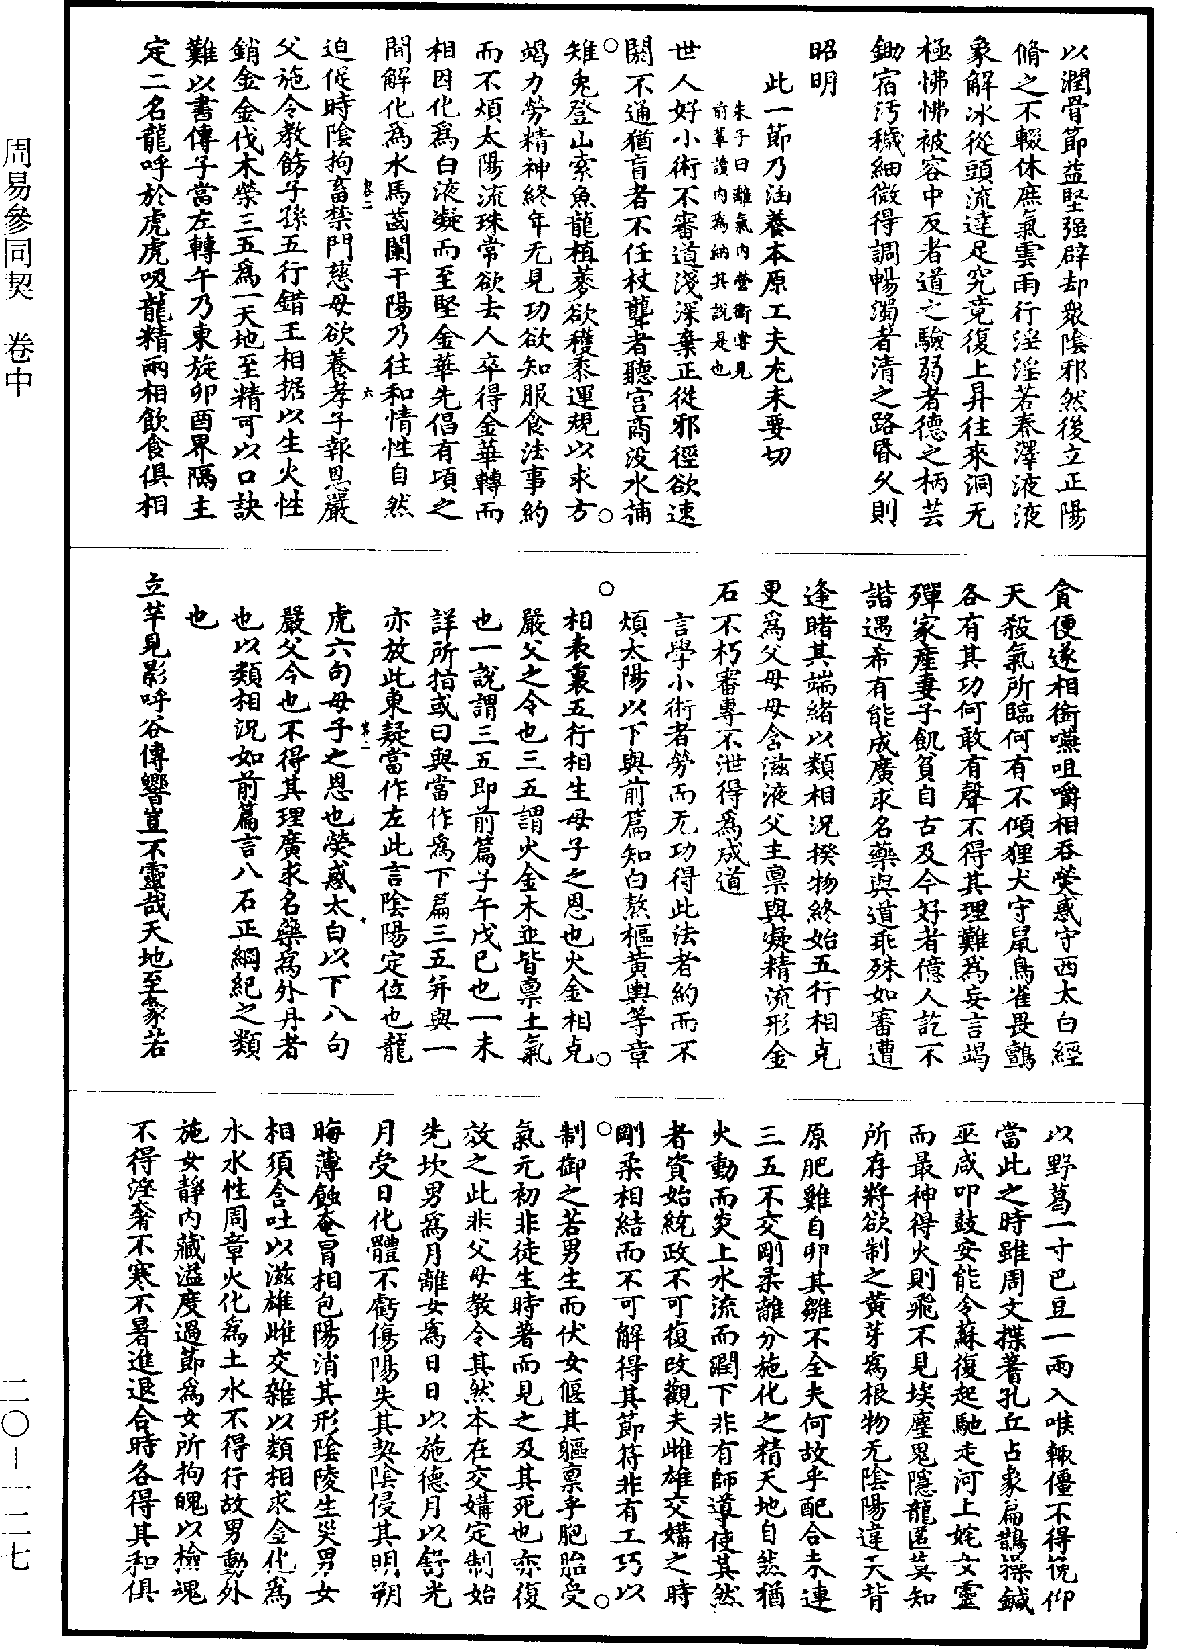 以潤骨節益堅强辟却衆陰邪然後立正陽
脩之不輟休庶氣雲雨行淫淫若春澤液液
象解冰從頭流達足究竟復上昇往來洞无
極怫怫被容中反者道之驗弱者德之柄芸
鋤宿汚穢細微得調暢濁者清之路昏久則
昭明
此一節乃涵養本原工夫尤未要切
朱子曰離氣内營衛嘗見
前輩讀内為納其說是也
世人好小術不審道淺深棄正從邪徑欲速
閼不通猶盲者不任杖聾者聽宮商没水捕
雉兎登山索魚龍植蓼欲穫黍運規以求方
竭力勞精神終年无見功欲知服食法事約
而不煩太陽流珠常欲去人卒得金華轉而
相因化爲白液凝而至堅金華先倡有頃之
間解化爲水馬齒闌干陽乃往和情性自然
迫促時陰拘畜禁門慈母欲養孝子報恩嚴
父施令教飭子孫五行錯王相据以生火性
銷金金伐木榮三五爲一天地至精可以口訣
難以書傳子當左轉午乃東旋卯酉界隔主
定二名龍呼於虎虎吸龍精兩相飲食俱相
貪便遂相銜嚥咀嚼相吞熒惑守西太白經
天殺氣所臨何有不傾狸犬守鼠鳥雀畏鸇
各有其功何敢有聲不得其理難爲妄言竭
殫家産妻子飢貧自古及今好者億人訖不
諧遇希有能成廣求名藥與道乖殊如審遭
逢睹其端緒以類相況揆物終始五行相克
更爲父母母含滋液父主禀與凝精流形金
石不朽審專不泄得爲成道
言學小術者勞而无功得此法者約而不
煩太陽以下與前篇知白熬樞黄轝等章
相表裏五行相生母子之恩也火金相克
嚴父之令也三五謂火金木並皆禀土氣
也一說謂三五即前篇子午戊已也一未
詳所指或曰與當作爲下篇三五并與一
亦放此東疑當作左此言陰陽定位也龍
虎六句母子之恩也熒惑太白以下八句
嚴父令也不得其理廣求名藥爲外丹者
也以類相況如前篇言八石正綱紀之類
也
立竿見影呼谷傳響豈不靈哉天地至象若
以野葛一寸巴豆一兩入喉輒僵不得俛仰
當此之時雖周文揲蓍孔丘占象扁鵲操鍼
巫咸叩鼓安能令蘇復起馳走河上姹女靈
而最神得火則飛不見埃塵鬼隱龍匿莫知
所存將欲制之黄芽爲根物无陰陽違天背
原肥雞自卵其雛不全夫何故乎配合未連
三五不交剛柔離分施化之精天地自然猶
火動而炎上水流而潤下非有師導使其然
者資始統政不可復改觀夫雌雄交媾之時
剛柔相結而不可解得其節符非有工巧以
制御之若男生而伏女偃其軀禀乎胞胎受
氣元初非徒生時著而見之及其死也亦復
效之此非父母教令其然本在交媾定制始
先坎男爲月離女爲日日以施德月以舒光
月受日化體不虧傷陽失其契陰侵其明朔
晦薄蝕奄冒相包陽消其形陰陵生災男女
相須含吐以滋雄雌交雜以類相求金化爲
水水性周章火化爲土水不得行故男動外
施女靜内藏溢度過節爲女所拘魄以檢魂
不得淫奢不寒不暑進退合時各得其和俱
周易參同契　卷中
二〇—一二七